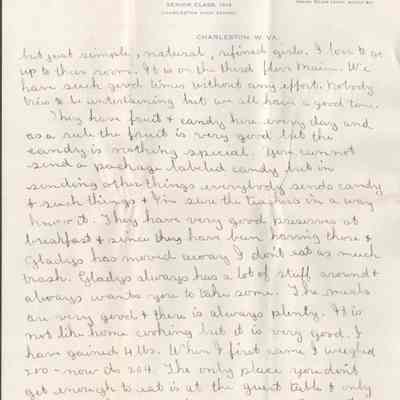 SENIOR CLASS, 1916
CHARLESTON HIGH SCHOOL
CHARLESTON, W. VA.
but just simple, natural, refined girls. I love to go
up to their room. It is on the third floor Main. We
have such good times without any effort. Nobody
tries to be entertaining but we all have a good time.
They have fruit & candy here every day and
as a rule the fruit is very good but the
candy is nothing special. You cannot
send a package labeled candy but in
sending other things everybody sends candy
& such things & I'm sure the teachers in a way
know it. They have very good preserves at
breakfast & since they have been having those &
Gladys has moved away I don't eat as much
trash. Gladys always has a lot of stuff around &
always wants you to take some. The meals
are very good & there is always plenty. It is
not like home cooking but it is very good. I
have gained 4 lbs. When I first came I weighed
200 - now its 204. The only place you don't
get enough to eat is at the guest table & only